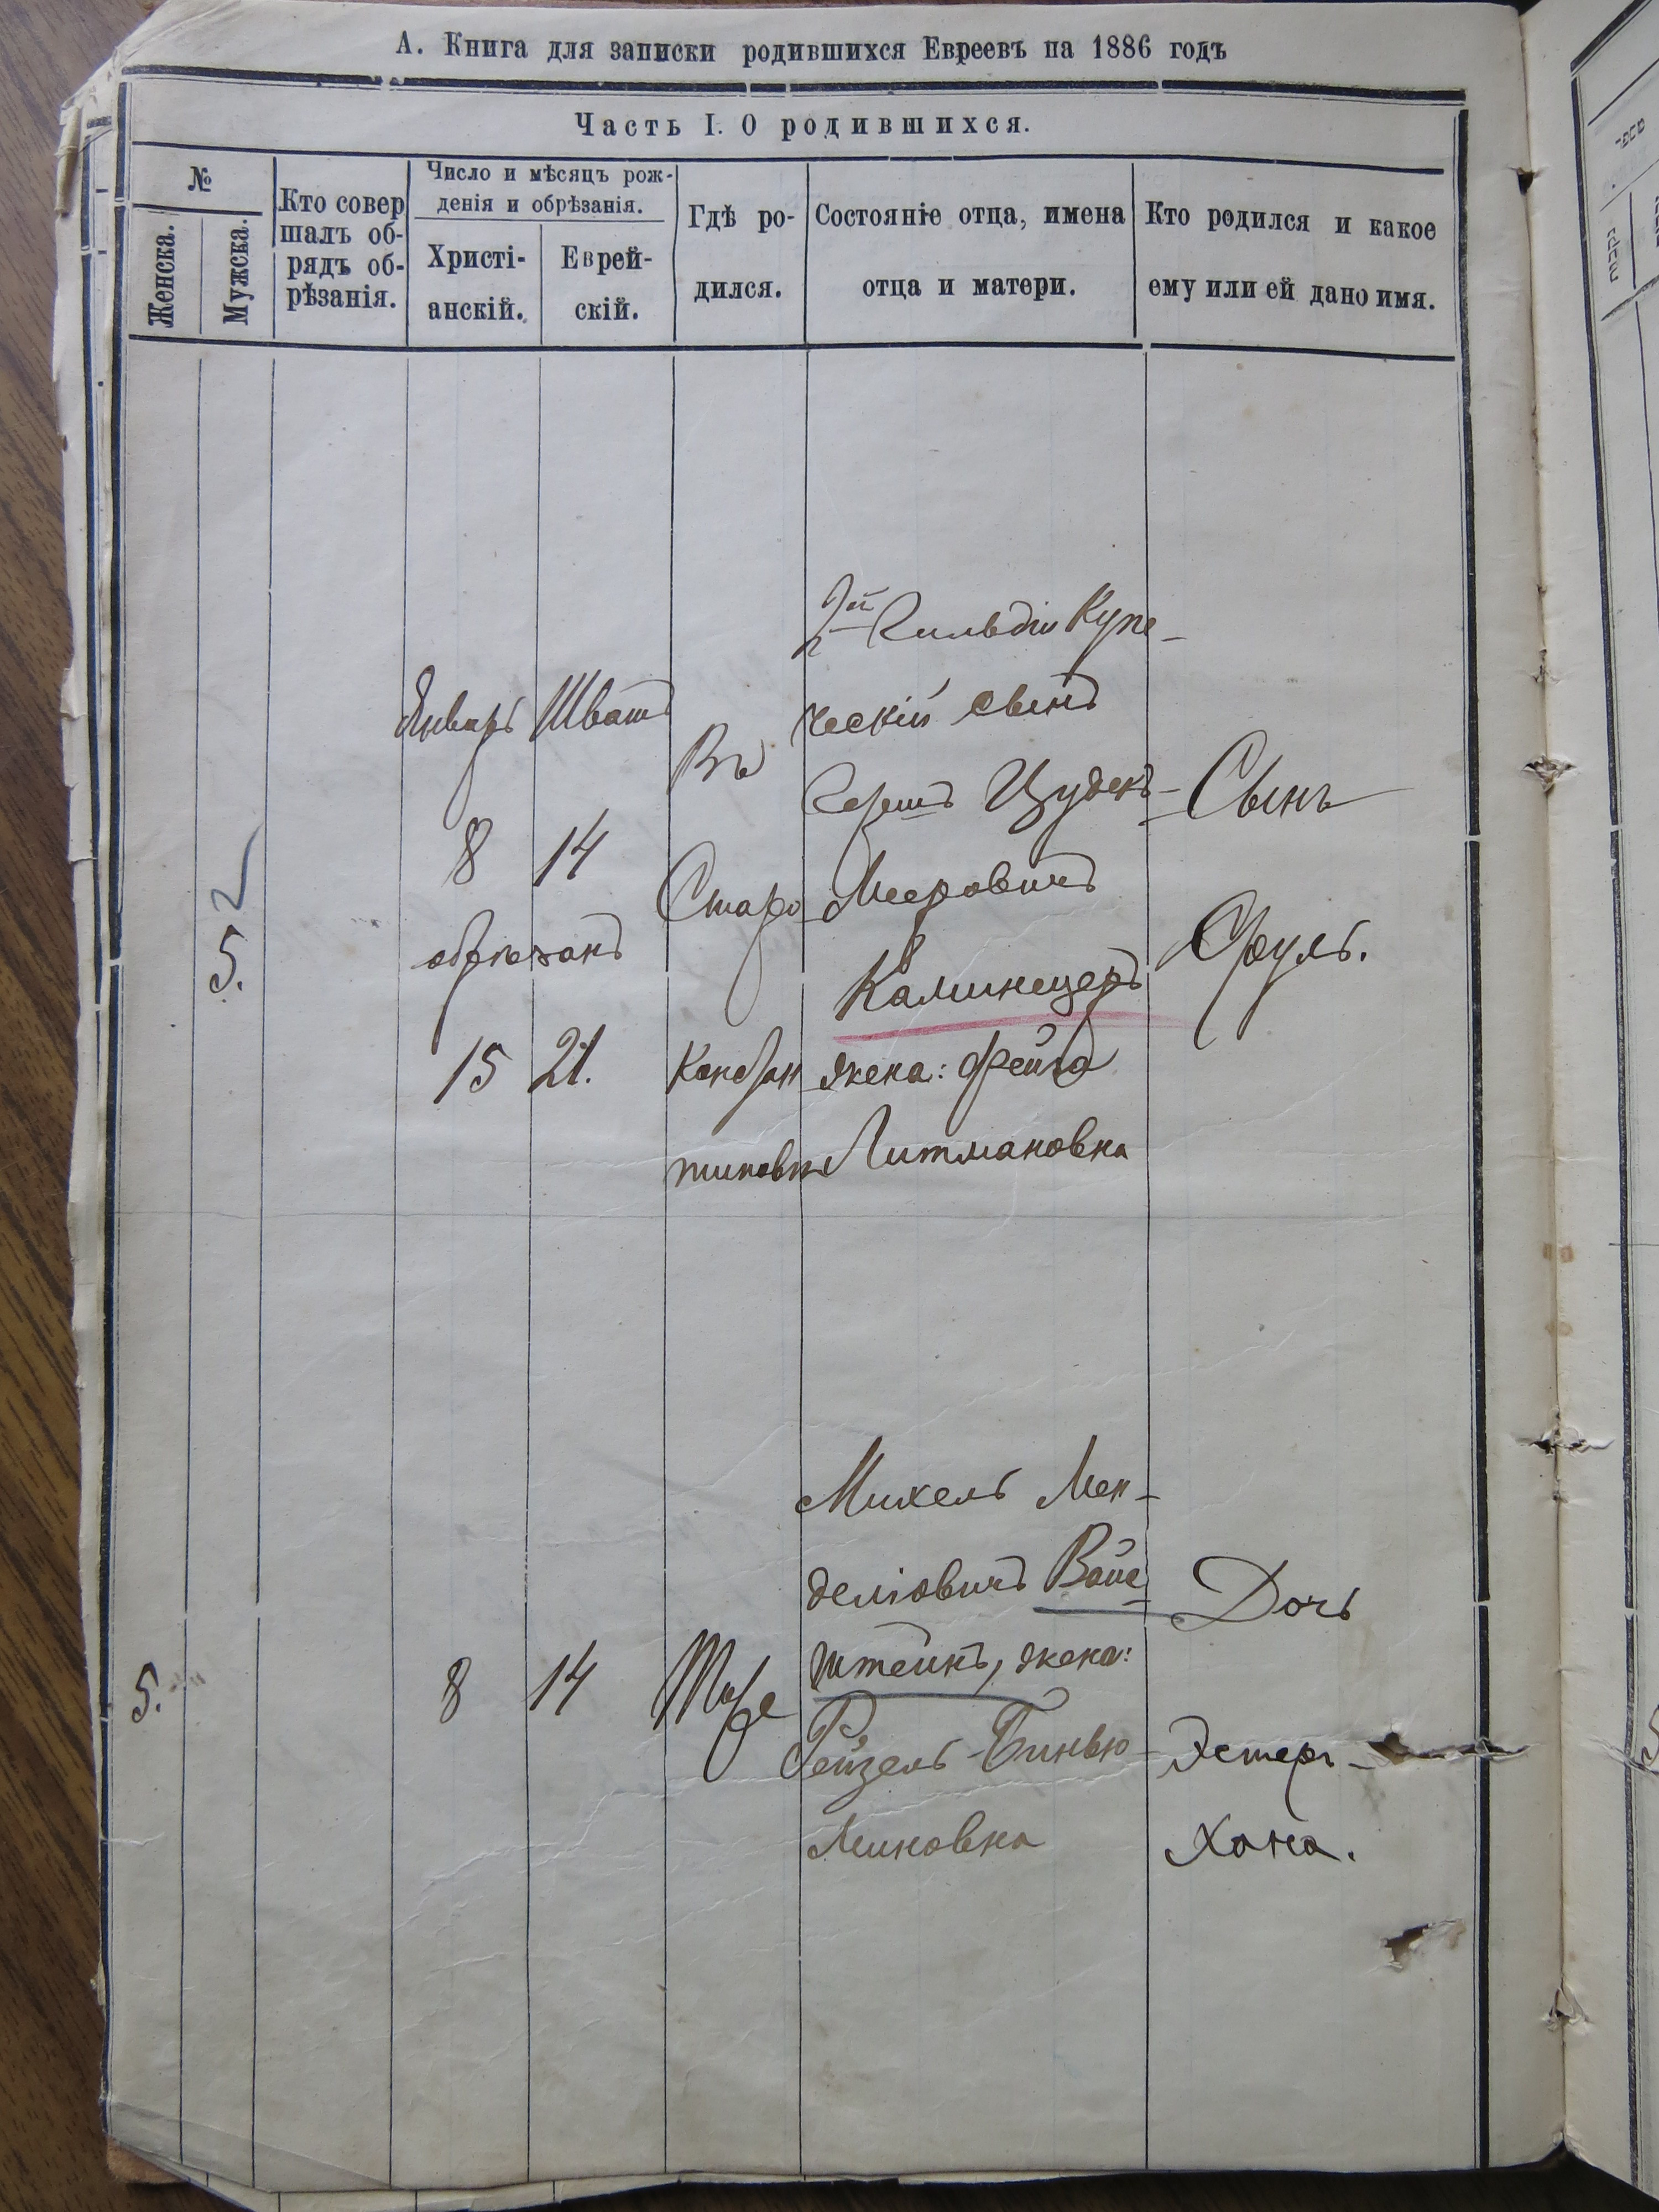 А. Книга для записки родившихся Евреевъ на 1886 годъ
Часть I. О родившихся.
№
Женска.
Мужска.
Кто совер
шалъ об-
рядъ об-
рѣзанія.
Число и мѣсяцъ рож-
денія и обрѣзанія.
Христі-
анскій.
Еврей-
скій.
Гдѣ ро-
дился.
Состояніе отца, имена
отца и матери.
Кто родился и какое
ему или ей дано имя.
5.
Январь
8
обрѣзанъ
15
Шватъ
14
21.
Въ
Старо
Констан
тиновѣ
2й Гильдіи Купе-
ческій сынъ
Гершъ
Мееровичъ
Каминецеръ
жена: Фейга
Литмановна
Сынъ
Сруль.
5.
8
14
Тоже
Михель Мен-
делiовичъ Вайс
штейнъ, жена:
Рейзель Бинью
миновна
Дочь
Эстеръ-
Хана.